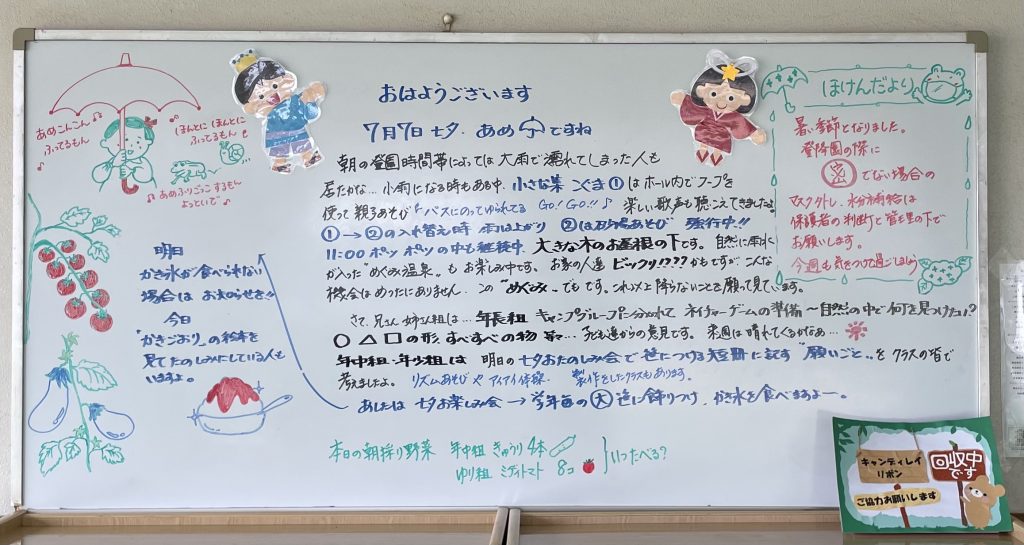 おはようございます
7月7日 七夕. あめ ですね
朝の登園時間帯によっては 大雨で濡れてしまった人も
居たかな… 小雨になる時もある中. 小さな集 こぐま①はホール内でフープを
使って親子あそび『バスにのってゆられてる GO! GO!!』♪ 楽しい歌声も聴こえてきましたよ
①→②の入れ替え時 雨は上がり ②は砂場あそび 強行中!!
11:00 ポッ ポッの中も継続中. 大きな木のお屋根の下です。自然に雨水
が入った"めぐみ温泉"もお楽しみ中です。お家の人達 ビックリ!???かもですが、こんな
機会はめったにありません. この"めぐみ"でもです。これ以上と降らないことを願って見ています。
さて、兄さん 姉さん組は…年長組 キャンプグループに分かれて ネイチャーゲームの準備〜自然の中で何を見つけたい?
○ △ □の形. すべすべの物 等… 子ども達からの意見です。来週は晴れてくるかなぁ…
年中組・年少組は 明日の七夕おたのしみ会で笹につける短冊に記す"願いごと"を クラスの皆で
考えましたよ。 リズムあそび や アイアイ体操. 製作をしたクラスもあります。
あしたは 七夕お楽しみ会→学年毎の大笹に飾りつけ. かき氷を食べますよー。
本日の朝採り野菜 年中組 きゅうり 4本
ゆり組 ミディトマト 8コ
いつたべる?
あめこんこん♪
ふってるもん
ほんとに ほんとに
ふってるもん
♪あめふりごっこするもん
よっといで♪
明日
かき氷が食べられない
場合は お知らせを!!
今日
"かきごおり"の絵本を
見てたのしみにしている人も
いますよ。
ほけんだより
暑い季節となりました。
登降園の際に
密でない場合の
マスク外し、水分補給は
保護者の判断と管理の下で
お願いします。
今週も気をつけて過ごしましょう
キャンディレイ
リボン
回収中
です
ご協力お願いします